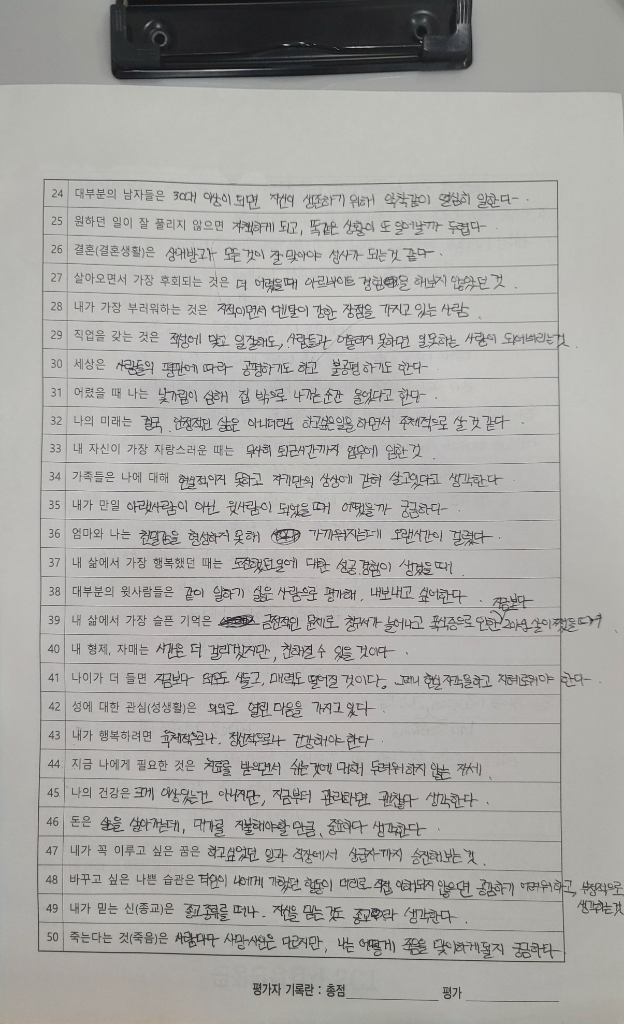 24 대부분의 남자들은 30대 이상이 되면 자신이 생존하기 위해 악착같이 열심히 일한다.
25 원하던 일이 잘 풀리지 않으면 자책하게 되고, 똑같은 상황이 또 일어날까 두렵다.
26 결혼(결혼생활)은 상대방과 모든 것이 잘 맞아야 성사가 되는것 같다.
27 살아오면서 가장 후회되는 것은 더 어렸을때 아르바이트 경험을 해보지 않았던 것.
28 내가 가장 부러워하는 것은 지적이면서 멘탈이 강한 장점을 가지고 있는 사람.
29 직업을 갖는 것은 적성에 맞고 일잘해도, 사람들과 어울리지 못하면 일못하는 사람이 되어버리는것.
30 세상은 사람들의 평판에 따라 공평하기도 하고 불공평하기도 한다.
31 어렸을 때 나는 낯가림이 심해 집 밖으로 나가는 순간 울었다고 한다.
32 나의 미래는 결국, 안정적인 삶은 아니더라도 하고싶은일을 하면서 주체적으로 살 것 같다.
33 내 자신이 가장 자랑스러운 때는 무사히 퇴근시간까지 업무에 임한것.
34 가족들은 나에 대해 현실적이지 못하고 자기만의 상상에 갇혀 살고있다고 생각한다.
35 내가 만일 아랫사람이 아닌 윗사람이 되었을때 어땠을까 궁금하다.
36 엄마와 나는 형성하지 못해 가까워지는데 오랜시간이 걸렸다.
37 내 삶에서 가장 행복했던 때는 도전했던일에 대한 성공경험이 생겼을때.
38 대부분의 윗사람들은 같이 일하기 싫은 사람으로 평가해, 내보내고 싶어한다.
지금보다
39 내 삶에서 가장 슬픈 기억은 금전적인 문제로 늘어나고 폭식증으로 인한 20kg 살이 쪘을때.
40 내 형제, 자매는 시간은 더 걸리겠지만, 친해질 수 있을 것이다.
41 나이가 더 들면 지금보다 외모도 시들고, 매력도 떨어질 것이다. 그러니 현실자각을하고 지혜로워야 한다.
42 성에 대한 관심(성생활)은 의외로 열린 마음을 가지고 있다.
43 내가 행복하려면 육체적으로나, 정신적으로나 건강해야 한다.
44 지금 나에게 필요한 것은 치료를 받으면서 쉬는것에 대해 두려워하지 않는 자세.
45 나의 건강은 크게 이상있는건 아니지만, 지금부터 관리하면 괜찮다 생각한다.
46 돈은 삶을 살아가는데, 대가를 지불해야할 만큼, 중요하다 생각한다.
47 내가 꼭 이루고 싶은 꿈은 하고싶었던 일과 직장에서 상급자까지 승진해보는 것.
48 바꾸고 싶은 나쁜 습관은 타인이 나에게 가했던 행동이 머리로 직접 이해되지 않으면 공감하기 어려워하고, 부정적으로
생각하는것
49 내가 믿는 신(종교)은 종교종류를 떠나, 자신을 믿는 것도 종교라 생각한다.
50 죽는다는 것(죽음)은 사람마다 사망시인은 다르지만, 나는 어떻게 죽음을 맞이하게될지 궁금하다.
평가자 기록란 : 총점 평가